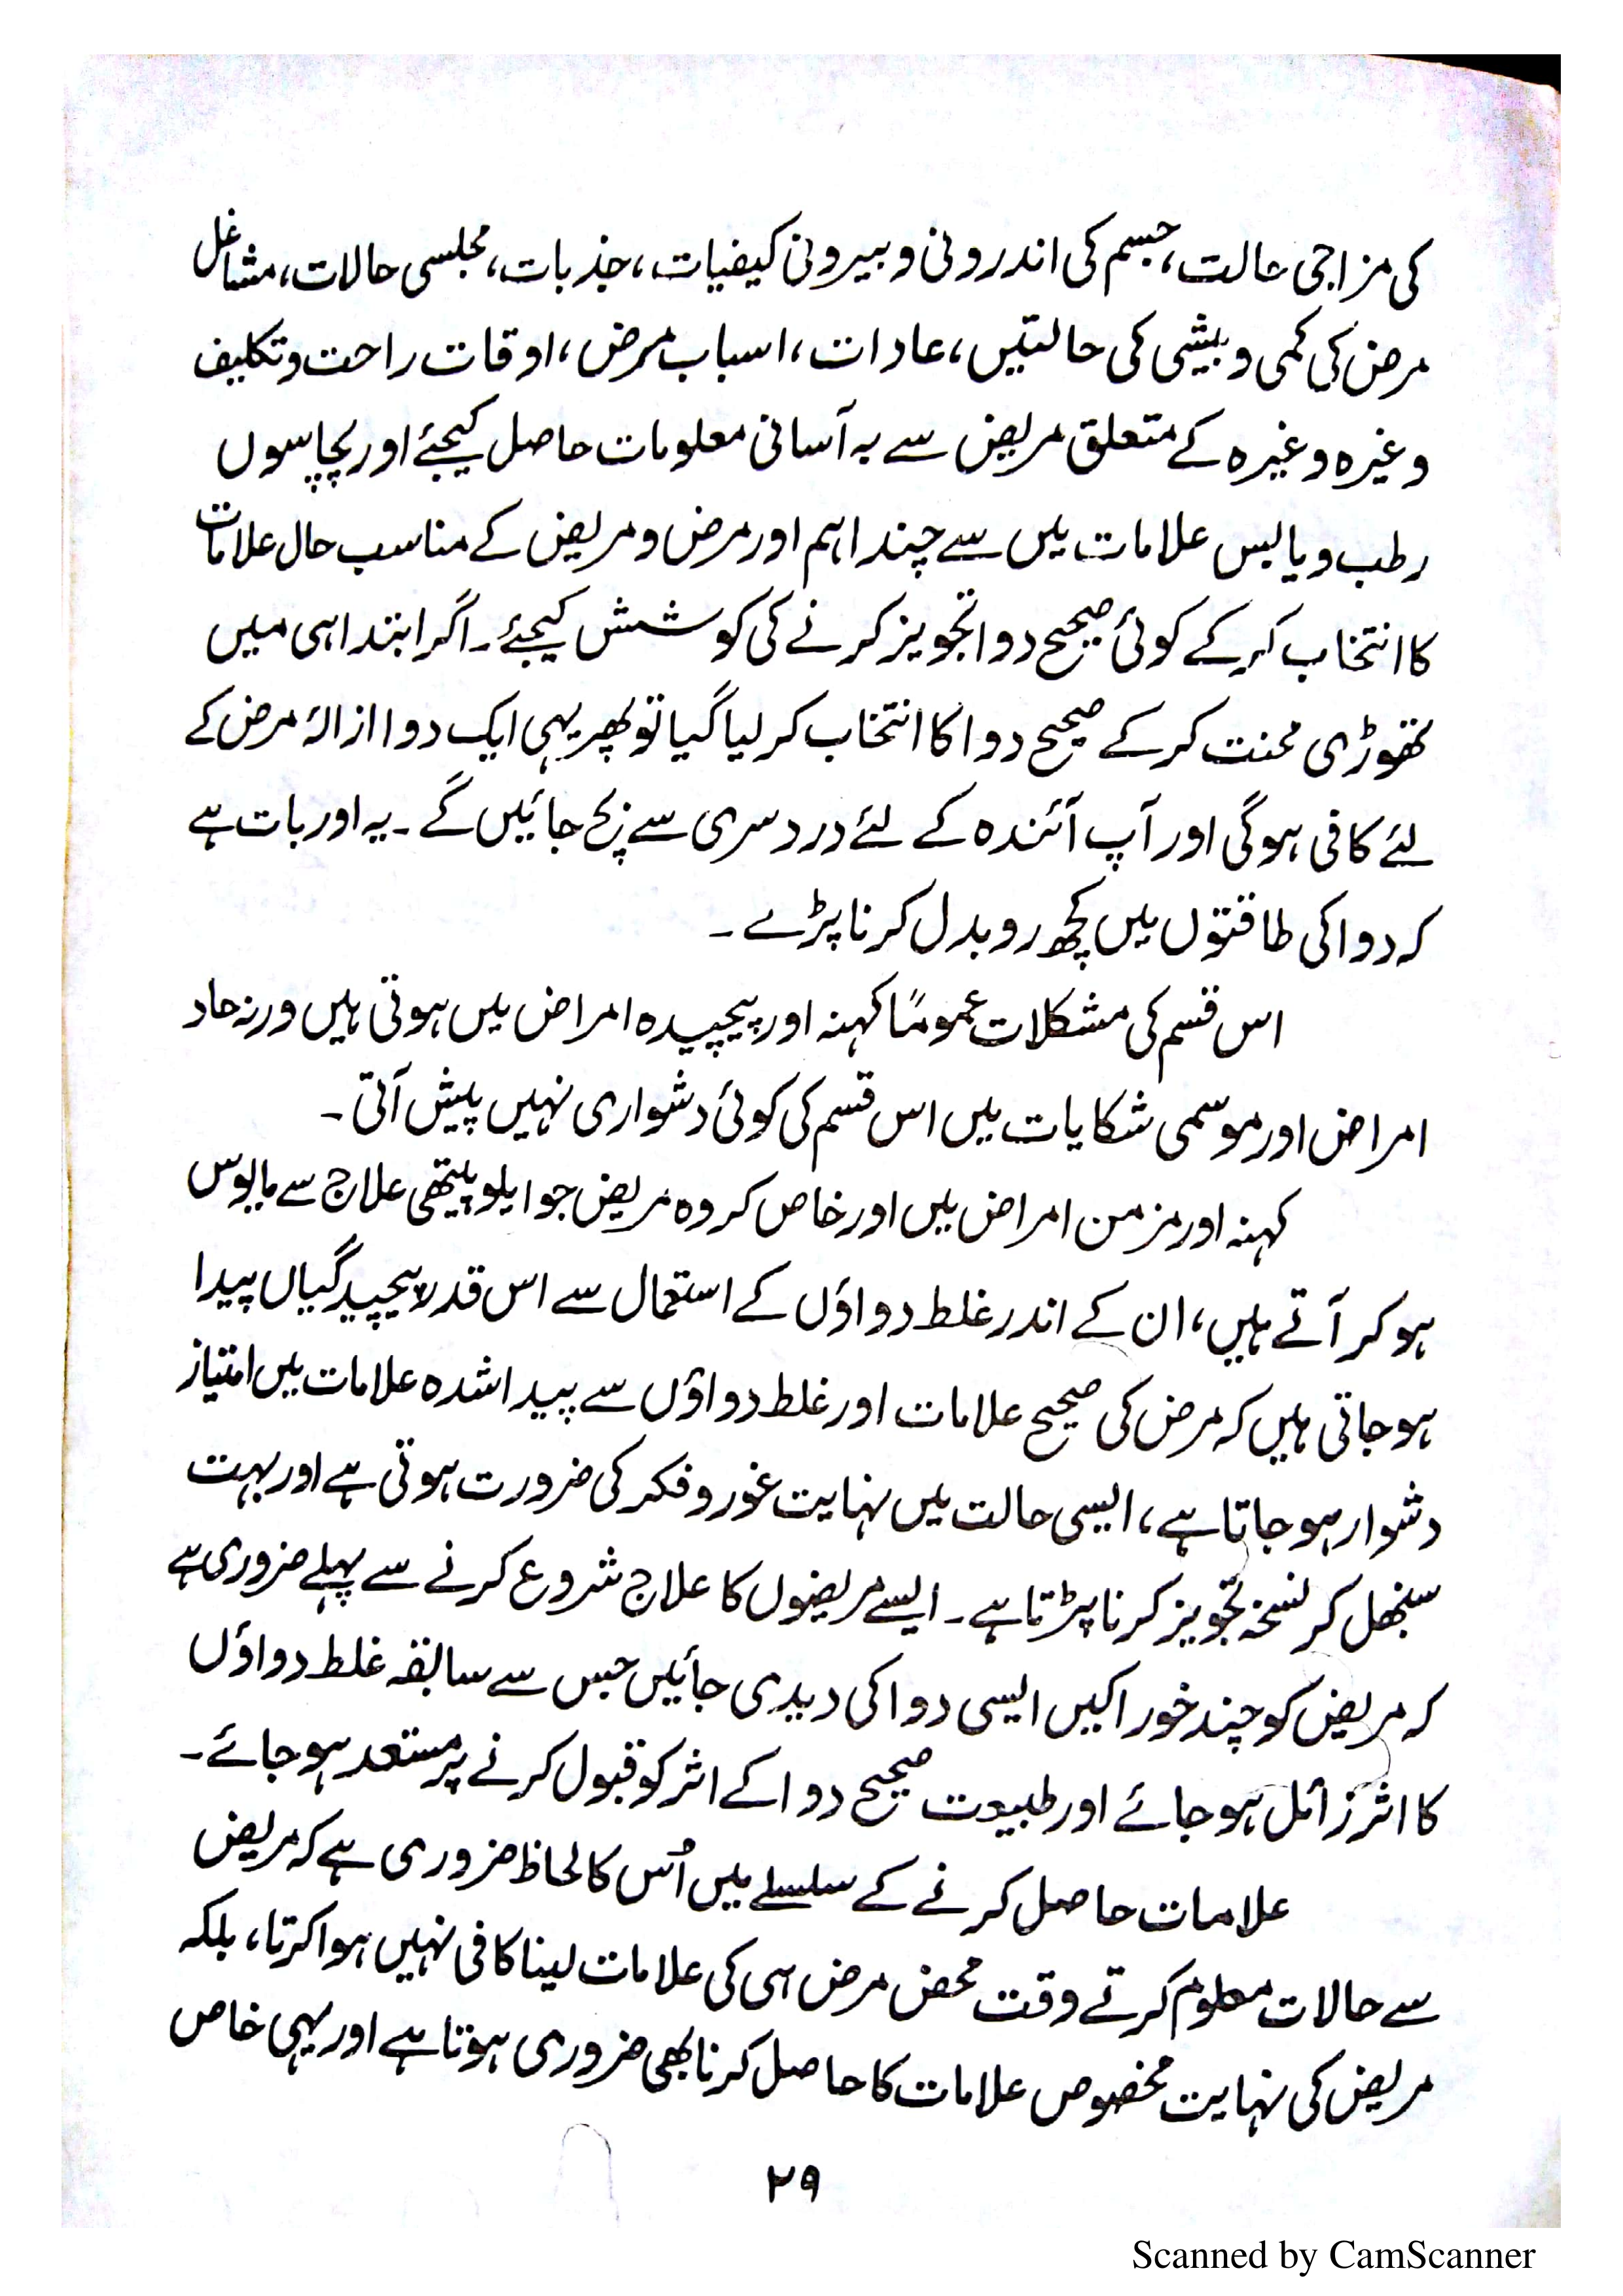 کی مزاجی حالت، جسم کی اندرونی و بیرونی کیفیات، جذبات، مجلسی حالات، مشاغل
مرض کی کمی و بیشی کی حالتیں، عادات، اسباب مرض، اوقات راحت و تکلیف
وغیرہ وغیرہ کے متعلق مریض سے بہ آسانی معلومات حاصل کیجئے اور پچاسوں
رطب و یابس علامات میں سے چند اہم اور مرض و مریض کے مناسب حال علامات
کا انتخاب کر کے کوئی صحیح دوا تجویز کرنے کی کوشش کیجئے۔ اگر ابتدا ہی میں
تھوڑی محنت کر کے صحیح دوا کا انتخاب کر لیا گیا تو پھر یہی ایک دوا ازالۂ مرض کے
لئے کافی ہوگی اور آپ آئندہ کے لئے دردسری سے بچ جائیں گے۔ یہ اور بات ہے
کہ دوا کی طاقتوں میں کچھ رو بدل کرنا پڑے۔
اس قسم کی مشکلات عموماً کہنہ اور پیچیدہ امراض میں ہوتی ہیں ورنہ حاد
امراض اور موسمی شکایات میں اس قسم کی کوئی دشواری نہیں پیش آتی۔
کہنہ اور مزمن امراض میں اور خاص کر وہ مریض جو ایلوپیتھی علاج سے مایوس
ہو کر آتے ہیں، ان کے اندر غلط دواؤں کے استعمال سے اس قدر پیچیدگیاں پیدا
ہو جاتی ہیں کہ مرض کی صحیح علامات اور غلط دواؤں سے پیدا شدہ علامات میں امتیاز
دشوار ہو جاتا ہے، ایسی حالت میں نہایت غور و فکر کی ضرورت ہوتی ہے اور بہت
سنبھل کر نسخہ تجویز کرنا پڑتا ہے۔ ایسے مریضوں کا علاج شروع کرنے سے پہلے ضروری ہے
کہ مریض کو چند خوراکیں ایسی دوا کی دیدی جائیں جس سے سابقہ غلط دواؤں
کا اثر زائل ہو جائے اور طبیعت صحیح دوا کے اثر کو قبول کرنے پر مستعد ہو جائے۔
علامات حاصل کرنے کے سلسلے میں اُس کا لحاظ ضروری ہے کہ مریض
سے حالات معلوم کرتے وقت محض مرض ہی کی علامات لینا کافی نہیں ہوا کرتا، بلکہ
مریض کی نہایت مخصوص علامات کا حاصل کرنا بھی ضروری ہوتا ہے اور یہی خاص
۲۹
Scanned by CamScanner